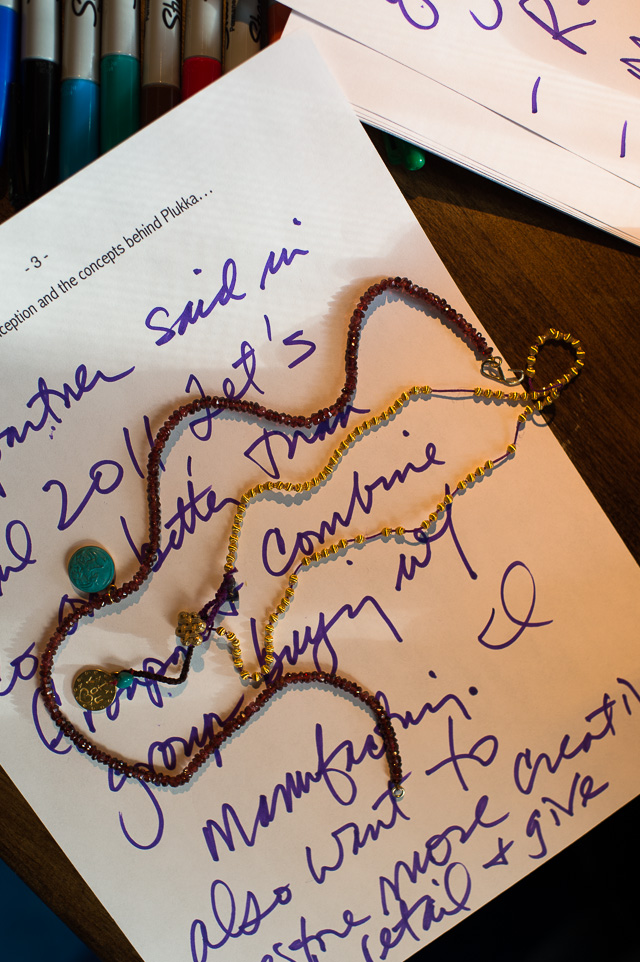 - 3 -
ception and the concepts behind Plukka...
partner said in
2011 Let's
do better than
Groupon & combine
group buying w/
manufacturing. I
also want to
restore more creati
retail & give